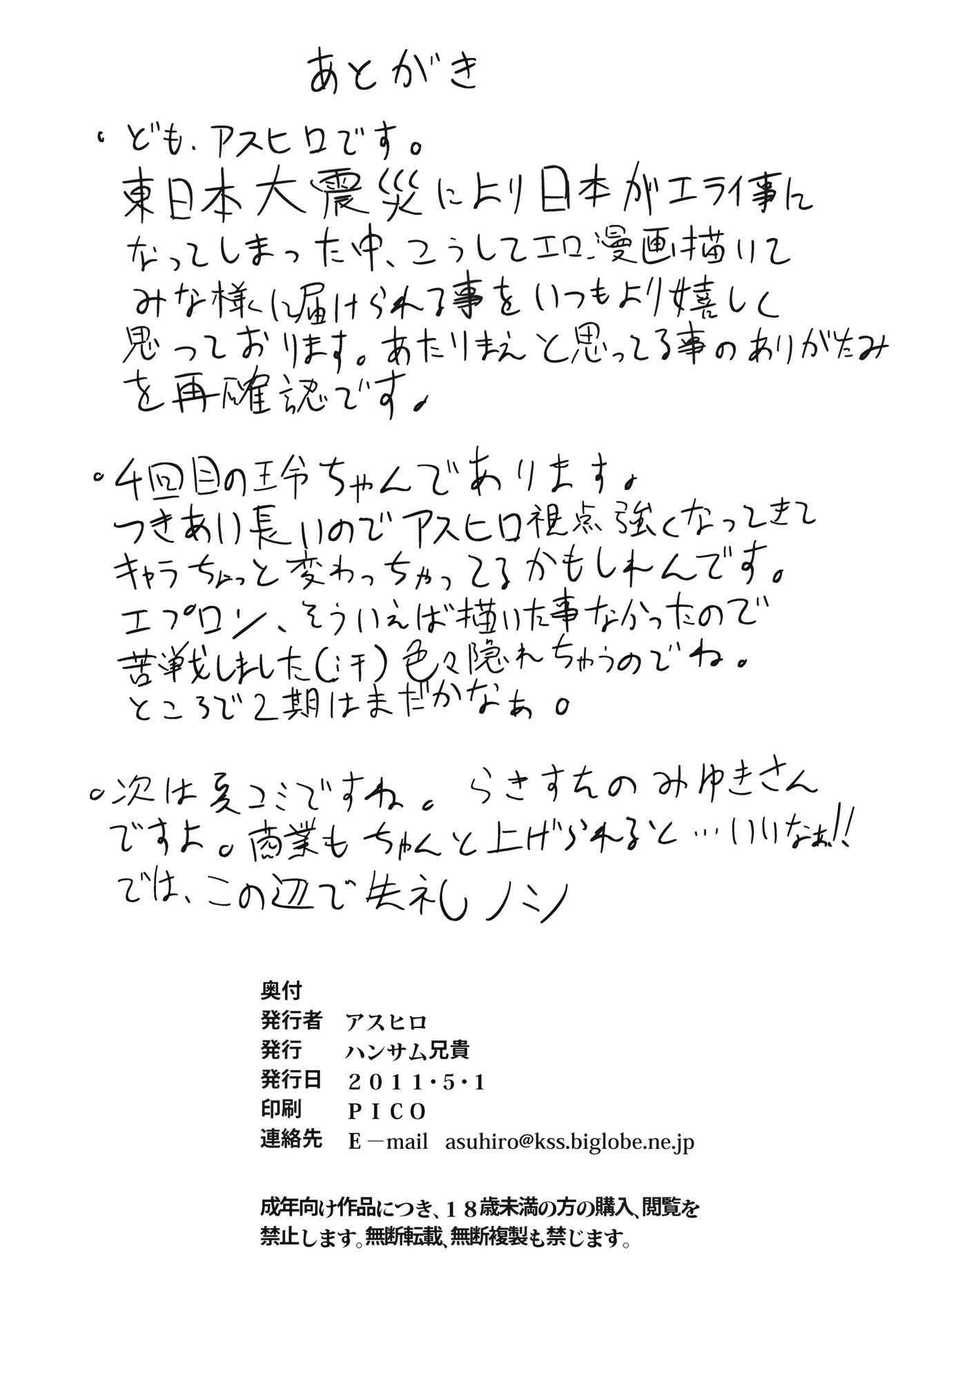 あとがき
・ども、アスヒロです。
東日本大震災により日本がエライ事に
なってしまった中、こうしてエロ漫画描いて
みな様に届けられる事をいつもより嬉しく
思っております。あたりまえと思ってる事のありがたみ
を再確認です。
・4回目の玲ちゃんであります。
つきあい長いのでアスヒロ視点強くなってきて
キャラちょっと変わっちゃってるかもしれんです。
エプロン、そういえば描いた事なかったので
苦戦しました(;汗)色々隠れちゃうのでね。
ところで2期はまだかなぁ。
○次は夏コミですね。らきすたのみゆきさん
ですよ。商業もちゃんと上げられると…いいなぁ!!
では、この辺で失礼ノシ
奥付
発行者 アスヒロ
発行 ハンサム兄貴
発行日 ２０１１・５・１
印刷 ＰＩＣＯ
連絡先 E－mail asuhiro@kss.biglobe.ne.jp
成年向け作品につき、１８歳未満の方の購入、閲覧を
禁止します。無断転載、無断複製も禁じます。